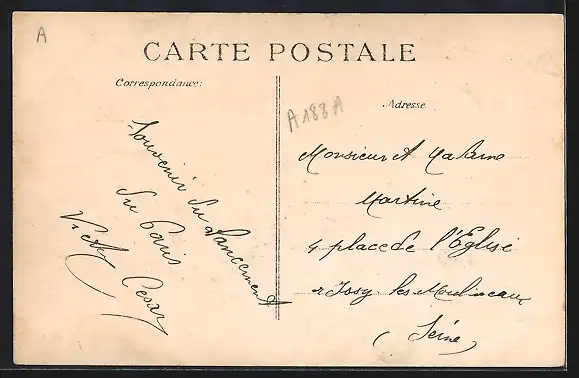 A
CARTE POSTALE
Correspondance:
Adresse
A183A
Souvenir du Lancement
du Paris
Victor Cesar
Monsieur et Madame
Martine
4 place de l'Église
à Issy les Moulineaux
(Seine)